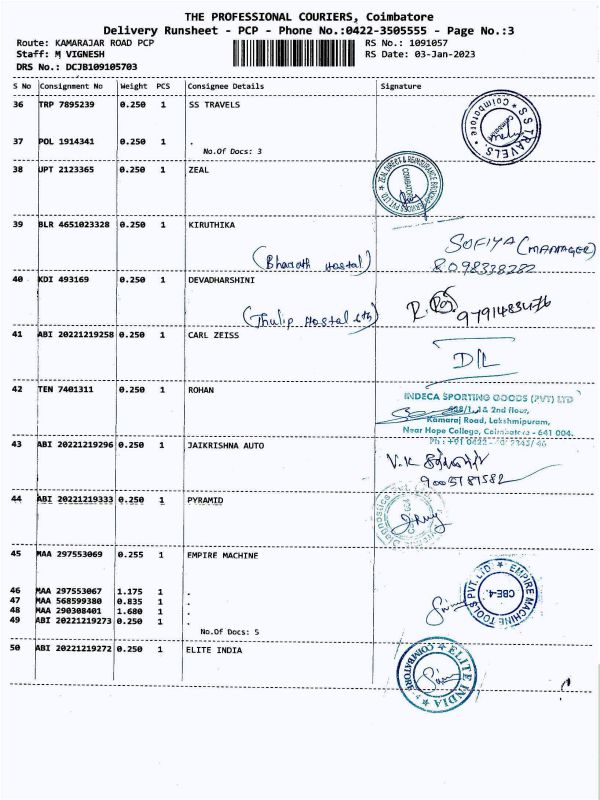 THE PROFESSIONAL COURIERS, Coimbatore
Delivery Runsheet - PCP - Phone No.:0422-3505555 - Page No.:3
Route: KAMARAJAR ROAD PCP RS No.: 1091057
Staff: M VIGNESH RS Date: 03-Jan-2023
DRS No.: DCJB109105703
S No Consignment No Weight PCS Consignee Details Signature
36 TRP 7895239 0.250 1 SS TRAVELS
S S TRAVELS. * Coimbatore *
37 POL 1914341 0.250 1 .
No.Of Docs: 3
38 UPT 2123365 0.250 1 ZEAL
COIMBATORE
39 BLR 4651023328 0.250 1 KIRUTHIKA
(Bharath Hostal) SOFIYA (MANAGER)
8098338282
40 KDI 493169 0.250 1 DEVADHARSHINI
(Thulip Hostal
41 ABI 20221219258 0.250 1 CARL ZEISS
D/L
42 TEN 7401311 0.250 1 ROHAN
INDECA SPORTING GOODS (PVT) LTD
1 & 2nd floor,
Kamaraj Road, Lakshmipuram,
Near Hope College, Coimbatore - 641 004.
Ph : +91 0422 -
43 ABI 20221219296 0.250 1 JAIKRISHNA AUTO
V.K
44 ABI 20221219333 0.250 1 PYRAMID
Diagnostics
45 MAA 297553069 0.255 1 EMPIRE MACHINE
EMPIRE MACHINE TOOLS PVT. LTD
CBE-4.
46 MAA 297553067 1.175 1 .
47 MAA 568599380 0.835 1 .
48 MAA 290308401 1.680 1 .
49 ABI 20221219273 0.250 1 .
No.Of Docs: 5
50 ABI 20221219272 0.250 1 ELITE INDIA
ELITE INDIA * COIMBATORE *